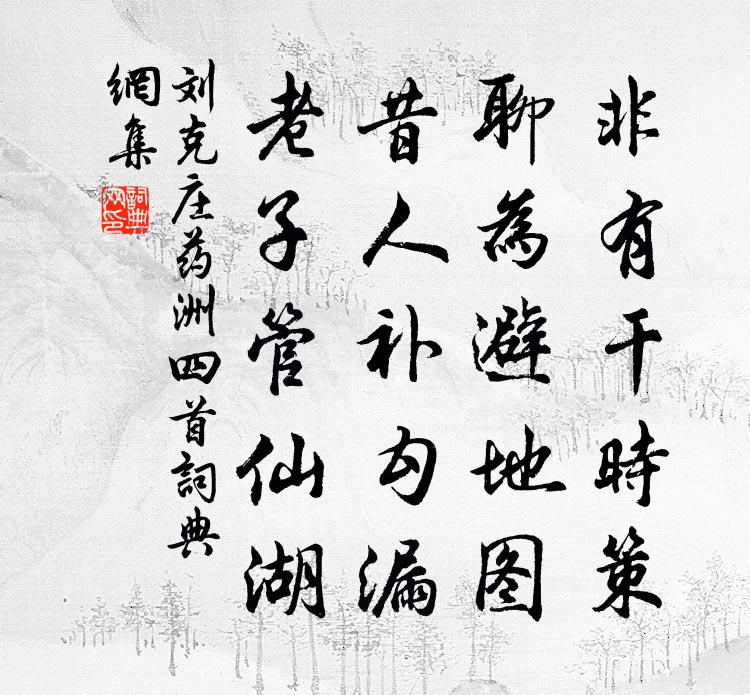 非有干時策
聊為避地图
昔人补勾漏
老子管仙湖
刘克庄药洲四首詞典
網集
詞典
网印